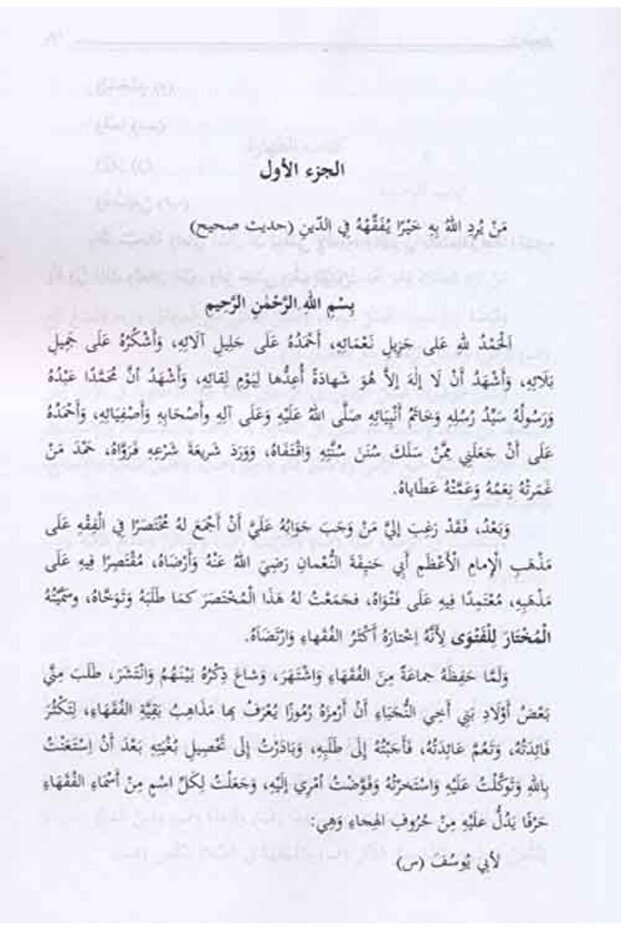 الجزء الأول
مَنْ يُرِدِ اللهُ بِهِ خَيْرًا يُفَقِّهْهُ فِي الدّين (حديث صحيح)
بِسْمِ اللهِ الرَّحْمٰنِ الرَّحِيمِ
الْحَمْدُ للهِ عَلى جَزِيلِ نَعْمَائِهِ، أَحْمَدُهُ عَلَى جَلِيلِ آلَائِهِ، وَأَشْكُرُهُ عَلَى جَمِيلِ
بَلَائِهِ، وَأَشْهَدُ أَنْ لَا إِلٰهَ إِلاَّ هُوَ شَهادَةً أُعِدُّها لِيَوْمِ لِقائِهِ، وَأَشْهَدُ أَنَّ مُحَمَّدًا عَبْدُهُ
وَرَسُولُهُ سَيِّدُ رُسُلِهِ وَخاتَمُ أَنْبِيَائِهِ صَلَّى اللهُ عَلَيْهِ وَعَلَى آلِهِ وأَصْحَابِهِ وَأَصْفِيَائِهِ، وَأَحْمَدُهُ
عَلَى أَنْ جَعَلَنِي مِمَّنْ سَلَكَ سُنَنَ سُنَّتِهِ وَاقْتَفَاهُ، وَوَرَدَ شَرِيعَةَ شَرْعِهِ فَرَوَّاهُ، حَمْدَ مَنْ
غَمَرَتْهُ نِعَمُهُ وَعَمَّتْهُ عَطَاياهُ.
وَبَعْدُ، فَقَدْ رَغِبَ إِلَيَّ مَنْ وَجَبَ جَوَابُهُ عَلَيَّ أَنْ أَجْمَعَ لَهُ مُخْتَصَرًا فِي الْفِقْهِ عَلَى
مَذْهَبِ الْإِمامِ الْأَعْظَمِ أَبِي حَنِيفَةَ النُّعْمانِ رَضِيَ اللهُ عَنْهُ وَأَرْضَاهُ، مُقْتَصِرًا فِيهِ عَلَى
مَذْهَبِهِ، مُعْتَمِدًا فِيهِ عَلَى فَتْوَاهُ، فجَمَعْتُ لَهُ هٰذَا الْمُخْتَصَرَ كمَا طَلَبَهُ وَتَوَخَّاهُ، وسَمَّيْتُهُ
الْمُخْتَارَ لِلْفَتْوَى لِأَنَّهُ اِخْتارَهُ أَكْثَرُ الفُقَهاءِ وَارْتَضَاهُ.
وَلَمَّا حَفِظَهُ جماعَةٌ مِنَ الفُقَهَاءِ وَاشْتَهَرَ، وشاعَ ذِكْرُهُ بَيْنَهُمْ وَانْتَشَرَ، طَلَبَ مِنِّي
بَعْضُ أَوْلَادِ بَنِي أَخِي النُّجَبَاءِ أَنْ أَرْمِزَهُ رُمُوزًا يُعْرَفُ بِها مَذَاهِبُ بَقِيَّةِ الفُقَهَاءِ، لِتَكْثُرَ
فائِدَتُهُ، وَتَعُمَّ عَائِدَتُهُ، فَأَجَبْتُهُ إِلَى طَلَبِهِ، وَبَادَرْتُ إِلَى تَحْصِيلِ بُغْيَتِهِ بَعْدَ أَنِ اِسْتَعَنْتُ
بِاللهِ وَتَوَكَّلْتُ عَلَيْهِ وَاسْتَخَرْتُهُ وَفَوَّضْتُ أَمْرِي إِلَيْهِ، وَجَعَلْتُ لِكلِّ اسْمٍ مِنْ أَسْمَاءِ الفُقَهَاءِ
حَرْفًا يَدُلُّ عَلَيْهِ مِنْ حُرُوفِ الهِجَاءِ وَهِيَ:
لأَبي يُوسُفَ (س)